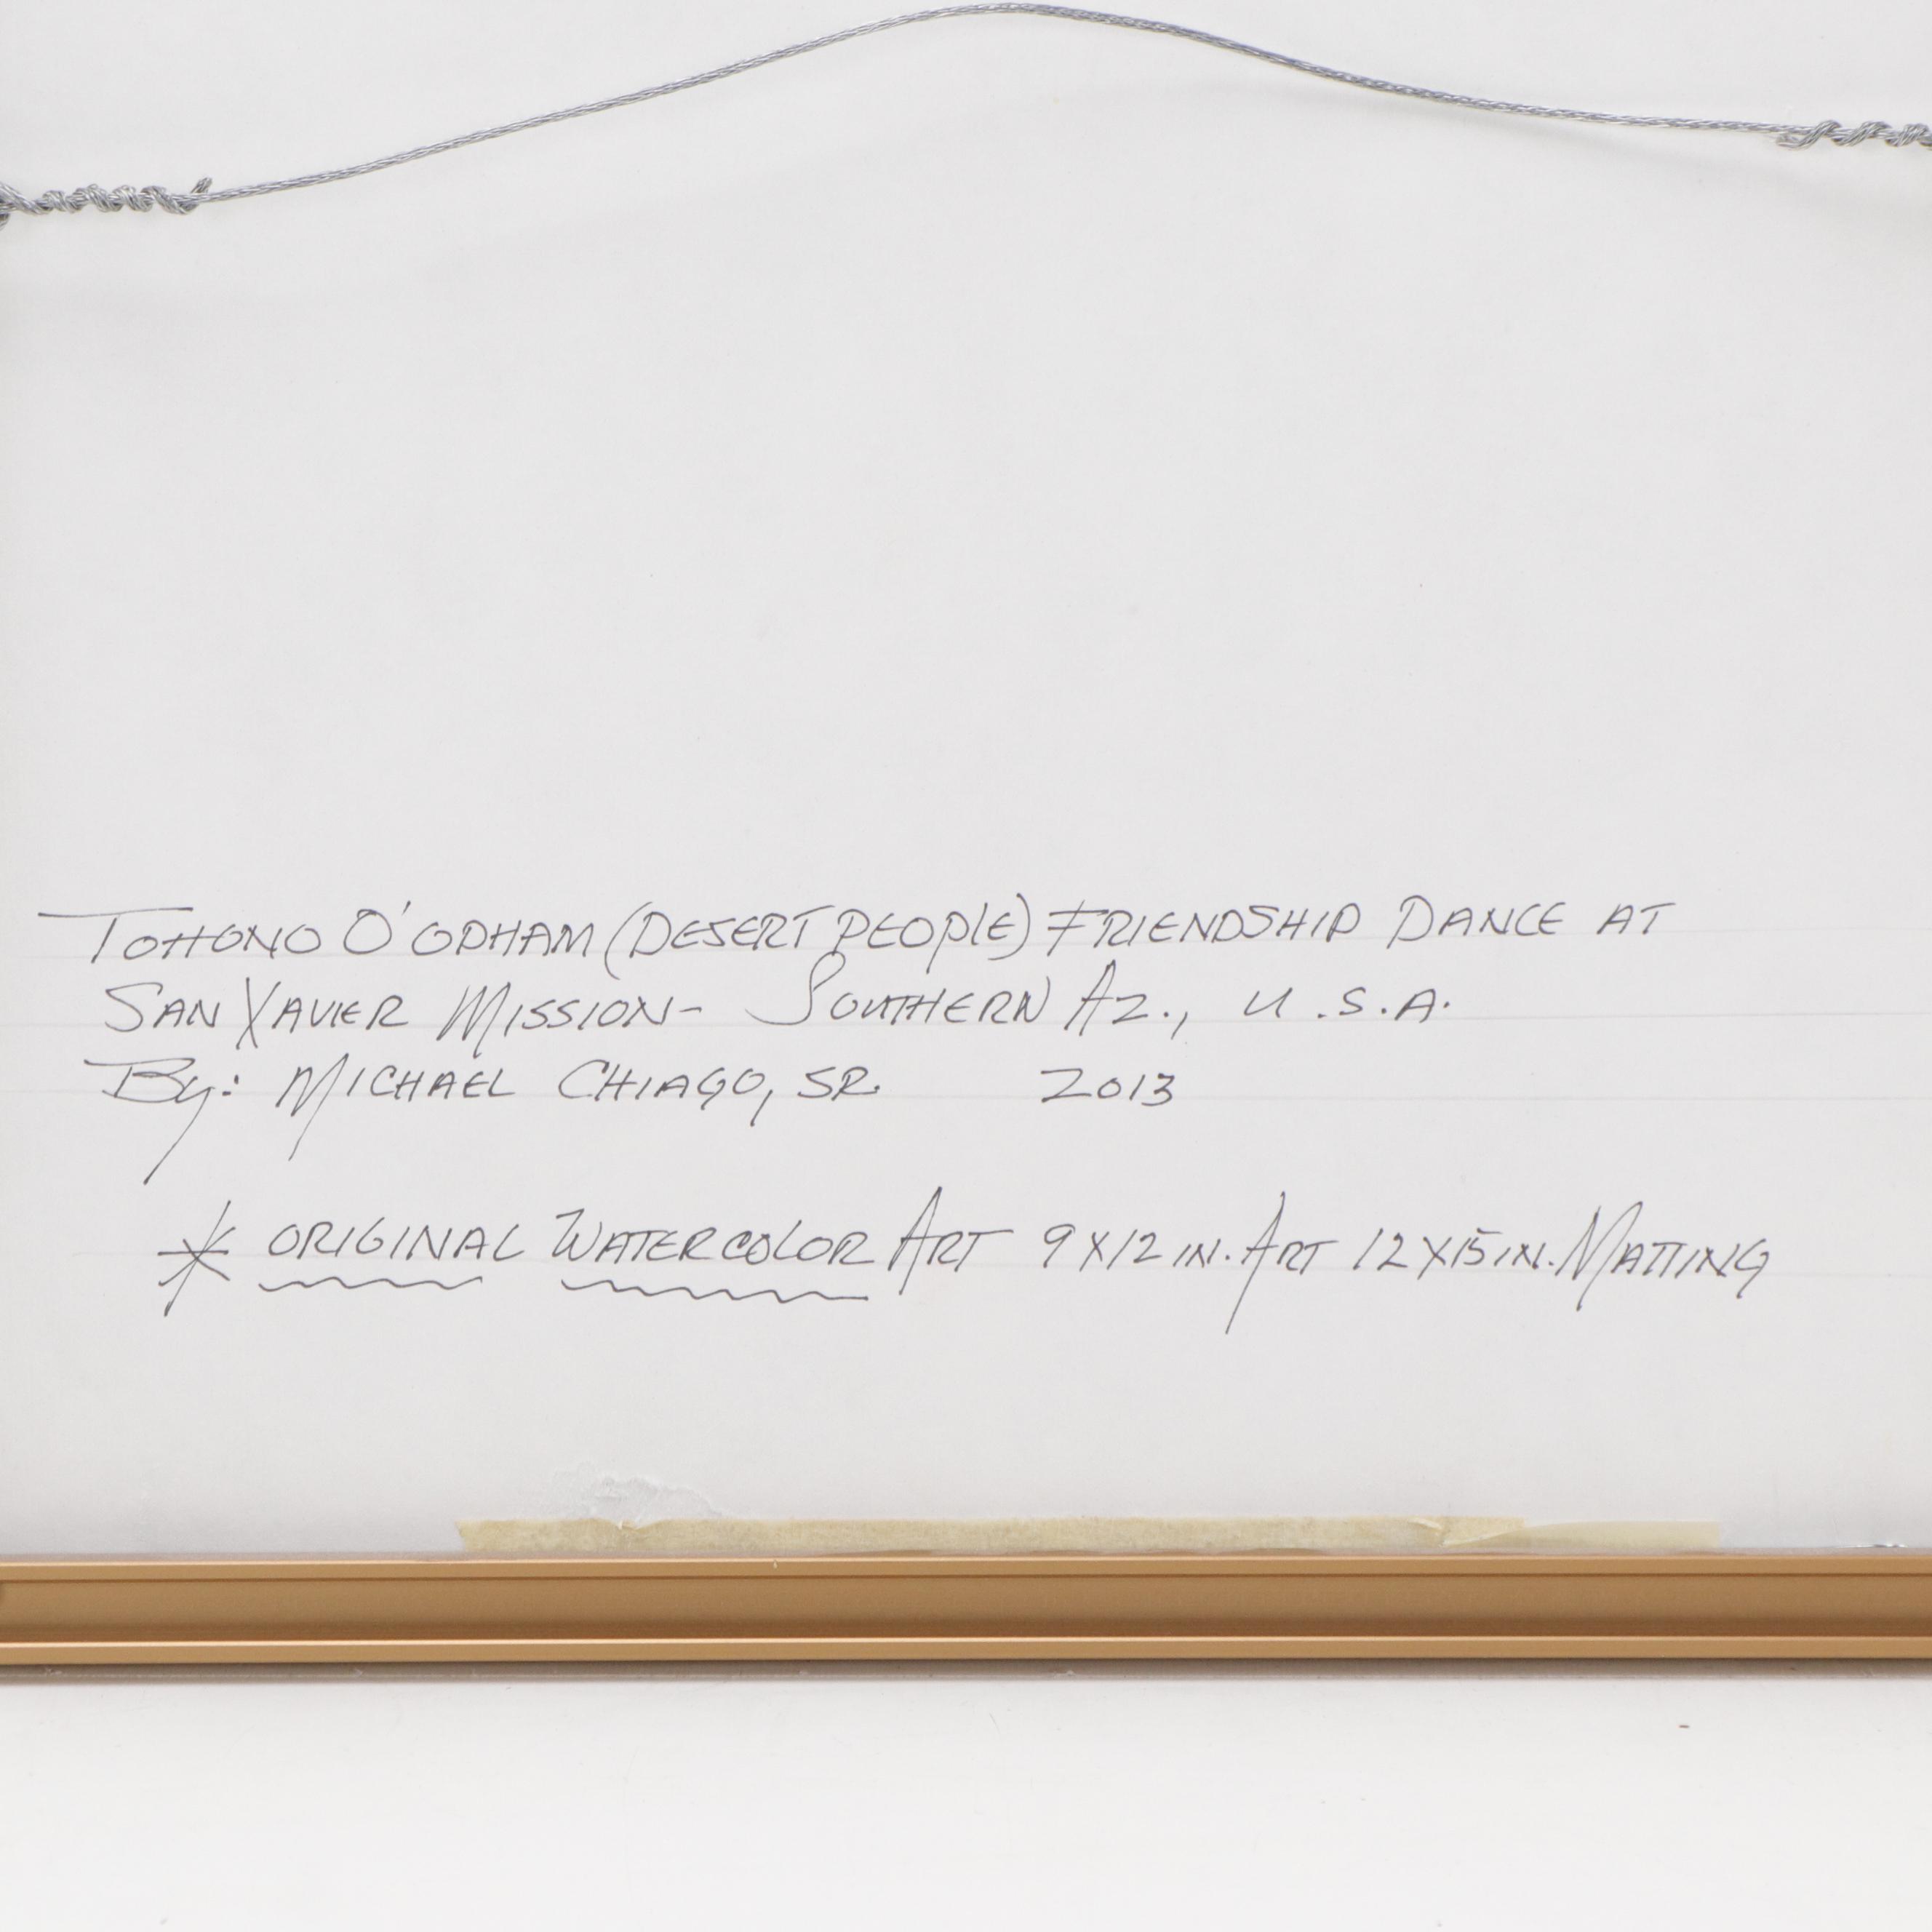 TOHONO O'ODHAM (DESERT PEOPLE) FRIENDSHIP DANCE AT
SAN XAVIER MISSION- SOUTHERN AZ., U.S.A.
BY: MICHAEL CHIAGO, SR. 2013
* ORIGINAL WATERCOLOR ART 9X12 IN. ART 12X15 IN. MATTING